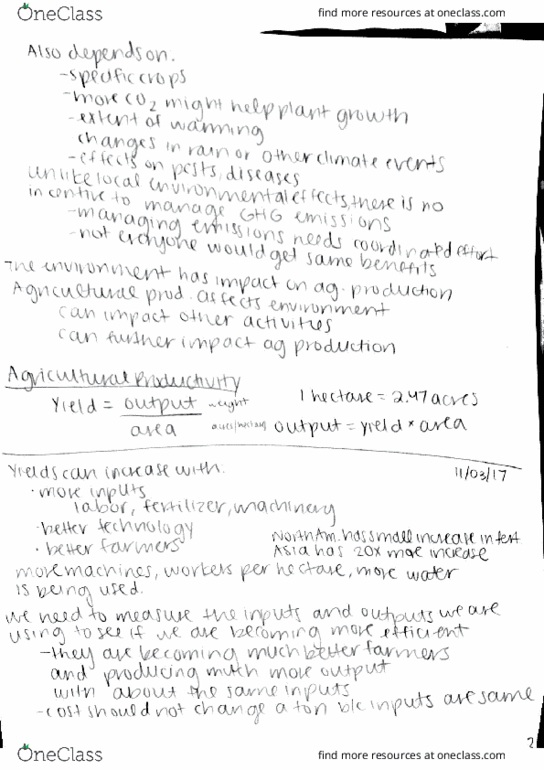 OneClass
find more resources at oneclass.com
Also depends on.
-specific crops
-more CO2 might help plant growth
-extent of warming
changes in rain or other climate events
-effects on pests, diseases
unlike local environmental effects, there is no
incentive to manage GHG emissions
-managing emissions needs coordinated effort
-not everyone would get same benefits
The environment has impact on ag. production
Agricultural prod. affects environment
can impact other activities
can further impact ag production
Agricultural Productivity
Yield = output weight 1 hectare = 2.47 acres
area output = yield * area
Yields can increase with. 11/03/17
· more inputs
labor, fertilizer, machinery
· better technology North Am. has small increase in fert.
· better farmers Asia has 20x more increase
more machines, workers per hectare, more water
is being used.
we need to measure the inputs and outputs we are
using to see if we are becoming more efficient
-they are becoming much better farmers
and producing much more output
with about the same inputs
-cost should not change a ton b/c inputs are same
2
OneClass
find more resources at oneclass.com